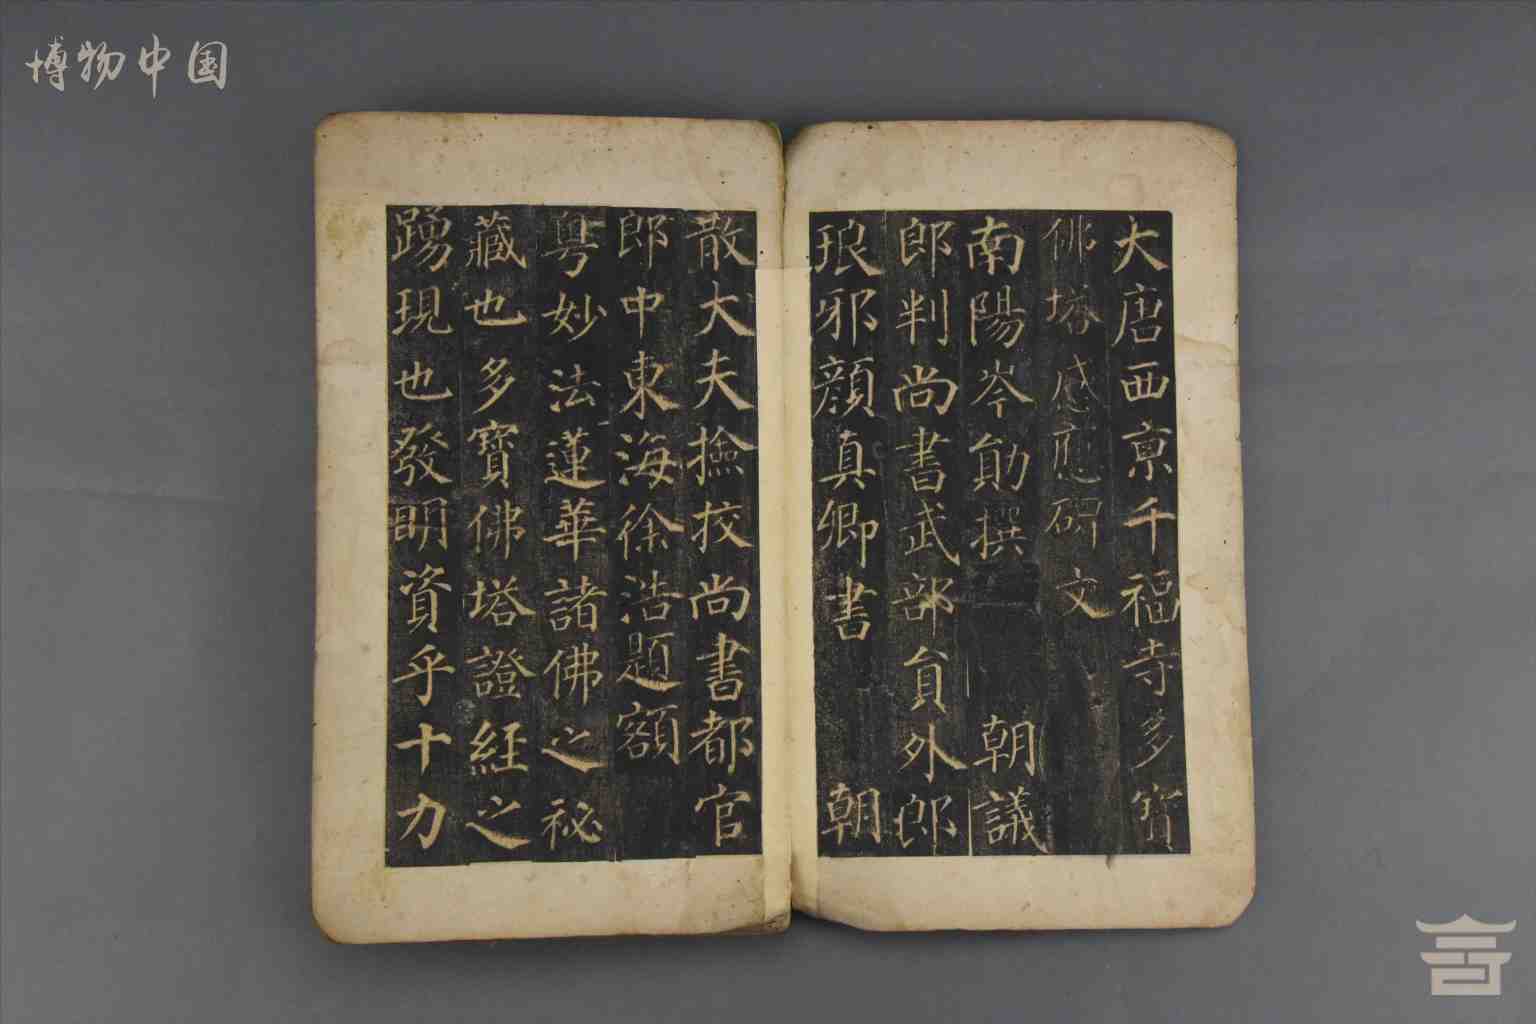 博物中国
大唐西京千福寺多寶
佛塔感應碑文
南陽岑勛撰 朝議
郎判尚書武部員外郎
琅邪顏真卿書 朝
散大夫撿挍尚書都官
郎中東海徐浩題額
粵妙法蓮華諸佛之秘
藏也多寶佛塔證經之
踴現也發明資乎十力